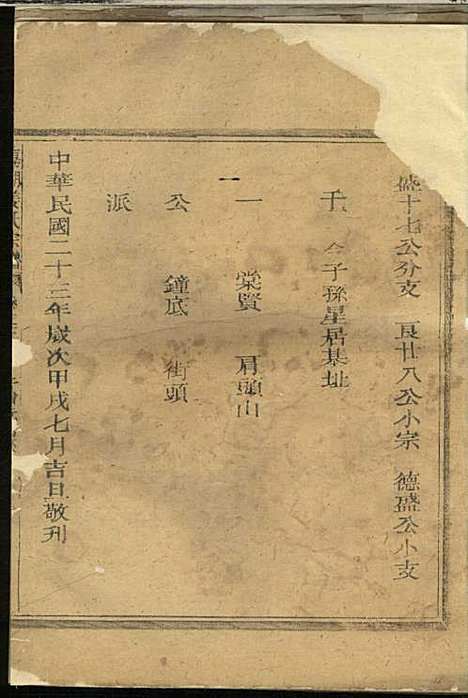 盛十七公分支 良廿八公小宗 德盛公小支
千 今子孫星居基址
一 棠賢 肩頭山
公 鐘底 街頭
派
中華民國二十三年歲次甲戌七月吉日敬刊